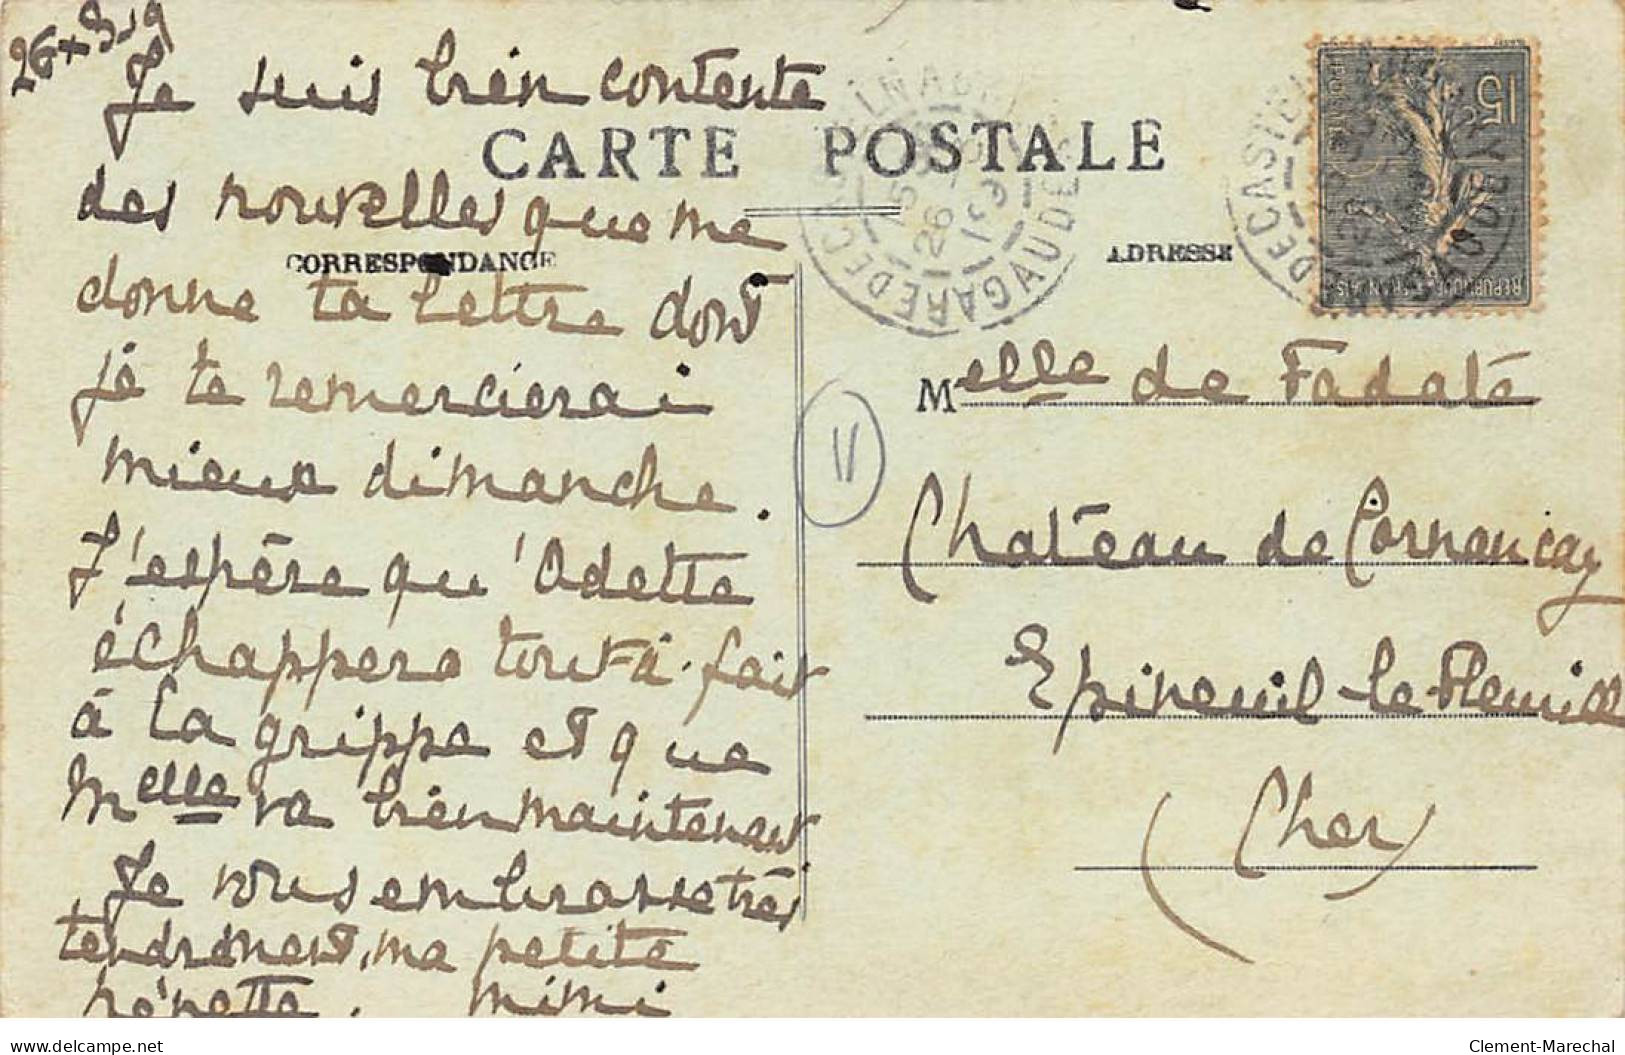 26 × 3-19
Je suis bien contente
CARTE POSTALE
des nouvelles que me
CORRESPONDANCE
donne ta lettre dont
je te remercierai
mieux dimanche.
J'espère qu'Odette
échappera tout-à-fait
à la grippe et que
Melle va bien maintenant
Je vous embrasse très
tendrement, ma petite
Mimi
11
ADRESSE
Melle de Fadate
Château de Cornançay
Epineuil-le-Fleuriel
(Cher)
GARE DE CASTELNAUDARY AUDE
26
15c
REPUBLIQUE FRANÇAISE
www.delcampe.net
Clement-Marechal